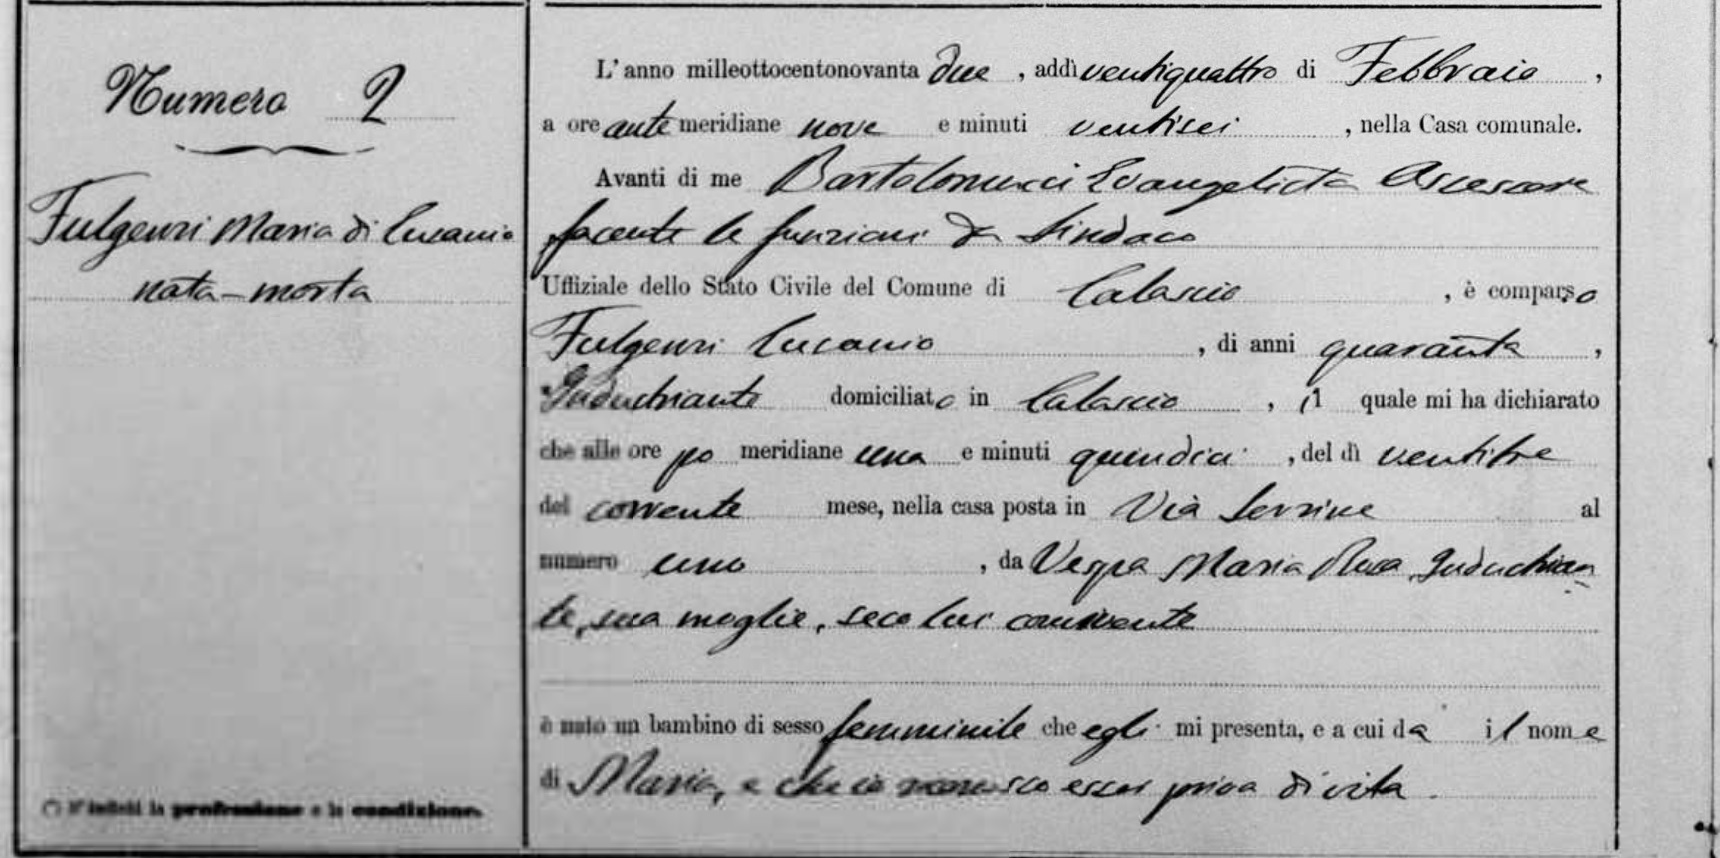 Numero 2
Fulgenzi Maria di Lucanio
nata-morta
L'anno milleottocentonovanta due, addì ventiquattro di Febbraio,
a ore ante meridiane nove e minuti ventisei, nella Casa comunale.
Avanti di me Bartolomucci Evangelista Assessore
facente le funzioni da Sindaco
Uffiziale dello Stato Civile del Comune di Calascio, è comparso
Fulgenzi Lucanio, di anni quaranta,
Industriante domiciliato in Calascio, il quale mi ha dichiarato
che alle ore po meridiane una e minuti quindici, del dì ventitre
del corrente mese, nella casa posta in Via al
numero uno, da Vespa Maria Rosa, Industrian
te, sua moglie, seco lui convivente
è nato un bambino di sesso femminile che egli mi presenta, e a cui da il nome
di Maria, e che io riconosco esser priva di vita.
(*) S'indichi la professione e la condizione.